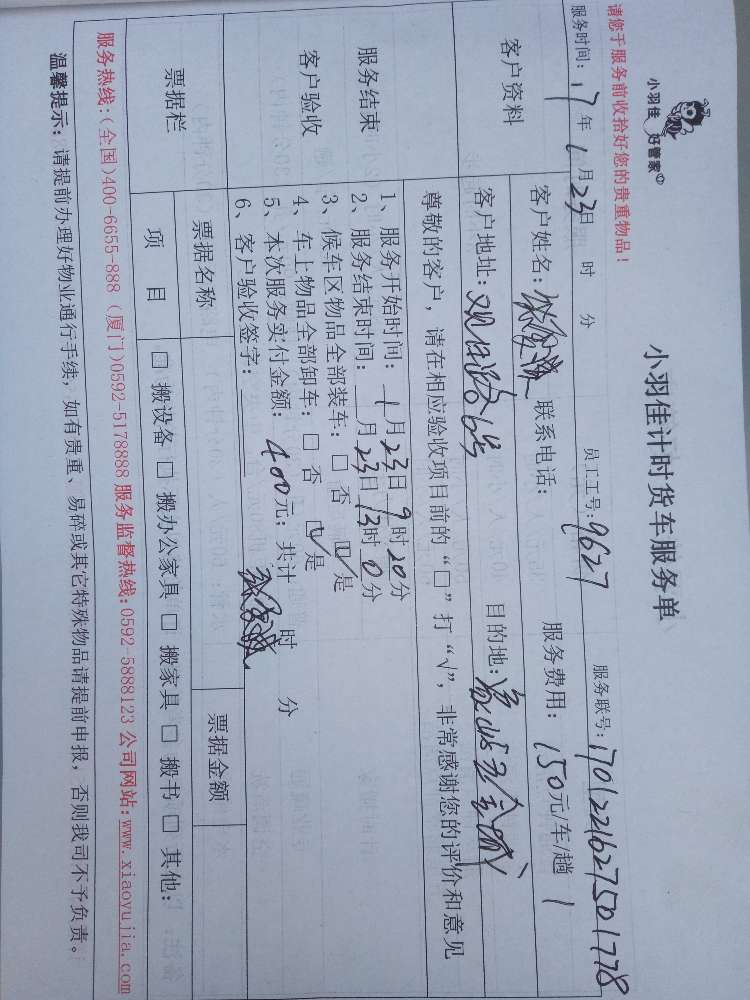 小羽佳 好管家
小羽佳计时货车服务单
请您于服务前收拾好您的贵重物品！
服务时间：17年1月23日 时 分 员工工号：9627 服务联号：1701221627501778
客户资料
客户姓名： 联系电话： 服务费用：150元/车/趟 1
客户地址： 目的地：
服务结束
客户验收
尊敬的客户，请在相应验收项目前的“□”打“√”，非常感谢您的评价和意见
1、服务开始时间：1月23日9时20分
2、服务结束时间： 月23日13时0分
3、候车区物品全部装车：□ 否 ☑ 是
4、车上物品全部卸车：□ 否 ☑ 是
5、本次服务实付金额：400元；共计 时 分
6、客户验收签字：
票据栏 票据名称 票据金额
项 目 □ 搬设备 □ 搬办公家具 □ 搬家具 □ 搬书 □ 其他：
服务热线：（全国）400-6655-888（厦门）0592-5178888 服务监督热线：0592-5888123 公司网站：www.xiaoyujia.com
温馨提示：请提前办理好物业通行手续，如有贵重、易碎或其它特殊物品请提前申报，否则我司不予负责。